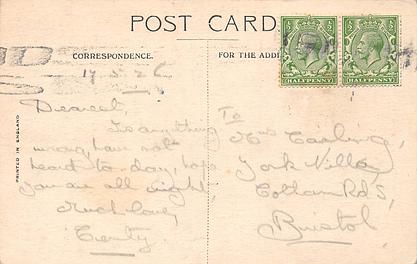 POST CARD
CORRESPONDENCE.
FOR THE ADD
HALFPENNY
HALFPENNY
PRINTED IN ENGLAND
17.5.26
Dearest,
Is anything
wrong, have not
heard to-day, hope
you are all right,
Much love,
To
York Villa
Cotham Rd S,
Bristol